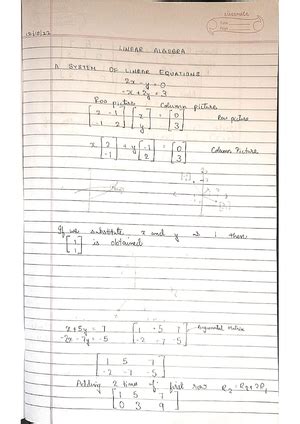 Classmate
Date
Page
LINEAR ALGEBRA
A SYSTEM OF LINEAR EQUATIONS
2x - y = 0
-x + 2y = 3
Row picture Column picture
[2 -1; -1 2] [x; y] = [0; 3] Row picture
x [2; -1] + y [-1; 2] = [0; 3] Column Picture
If we substitute x and y as 1 then
[1; 1] is obtained
x + 5y = 7 [1 5 7; -2 -7 -5] Augmented Matrix
-2x - 7y = -5
[1 5 7; -2 -7 -5]
Adding 2 times of first row R2 = R2 + 2R1
[1 5 7; 0 3 9]